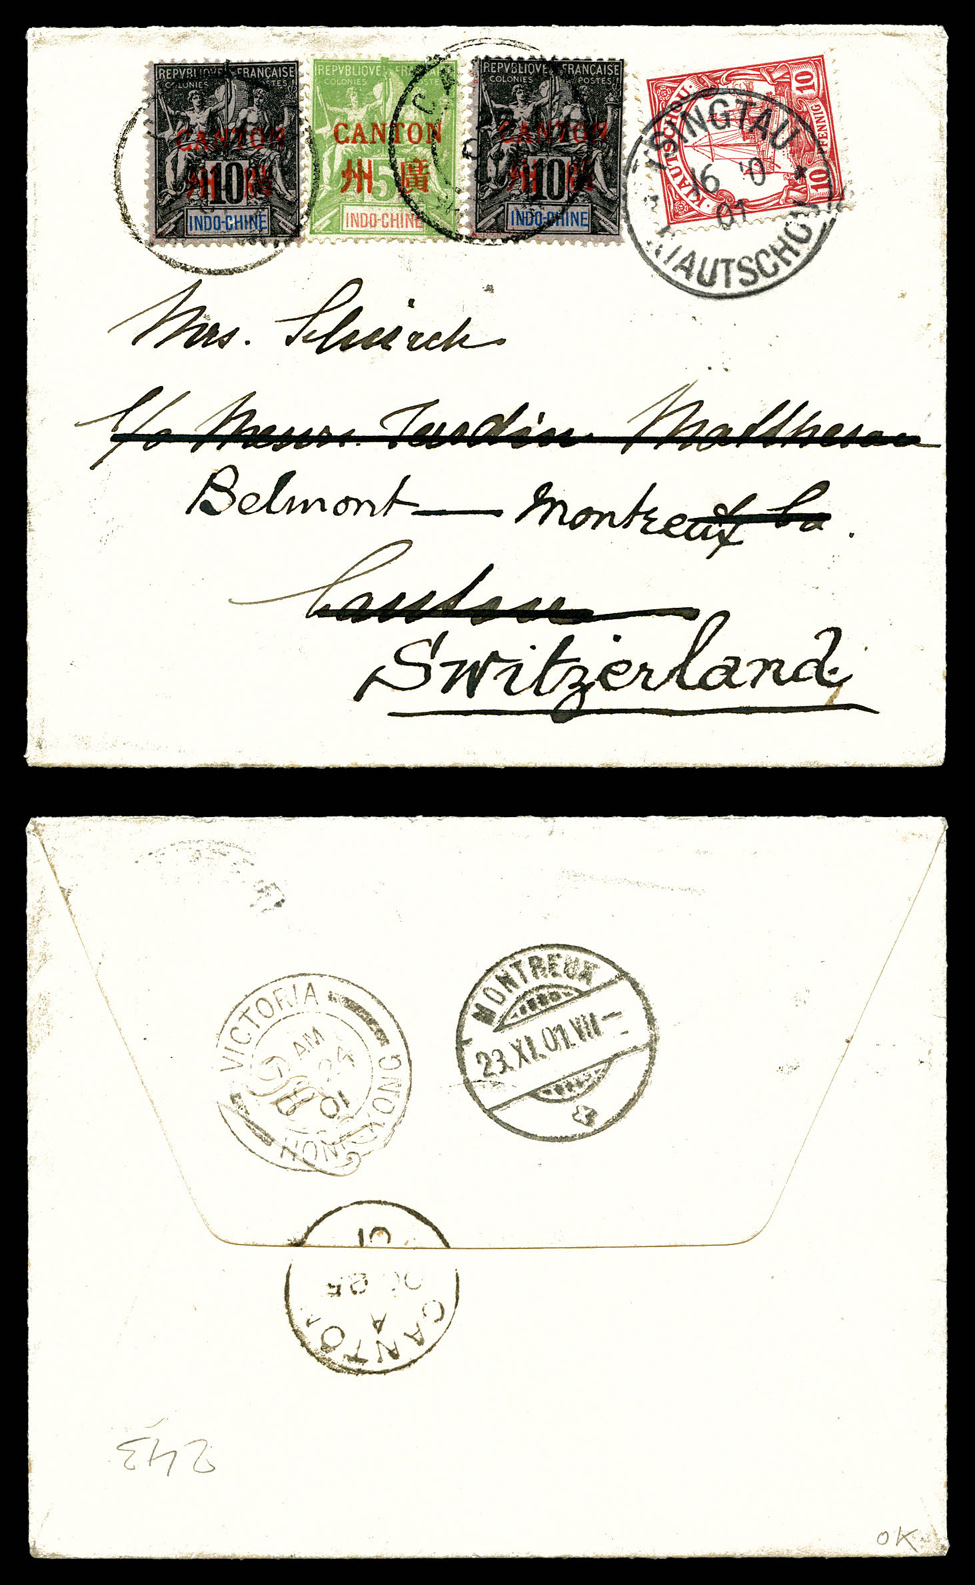 REPVBLIQUE FRANÇAISE
COLONIES POSTES
CANTON
州 廣
10
INDO-CHINE
REPVBLIQUE FRANÇAISE
COLONIES
CANTON
州 廣
5
INDO-CHINE
REPVBLIQUE FRANÇAISE
COLONIES POSTES
CANTON
州 廣
10
INDO-CHINE
KIAUTSCHOU
10 PFENNIG 10
TSINGTAU
01
KIAUTSCHOU
Mrs. Schürch
c/o Messrs. Jardin Mattheson
Belmont — Montreux Co.
Canton
Switzerland.
VICTORIA
AM
24
01
HONG KONG
MONTREUX
23.XI.01.VII-
01
OC 25
A
CANTON
243
OK